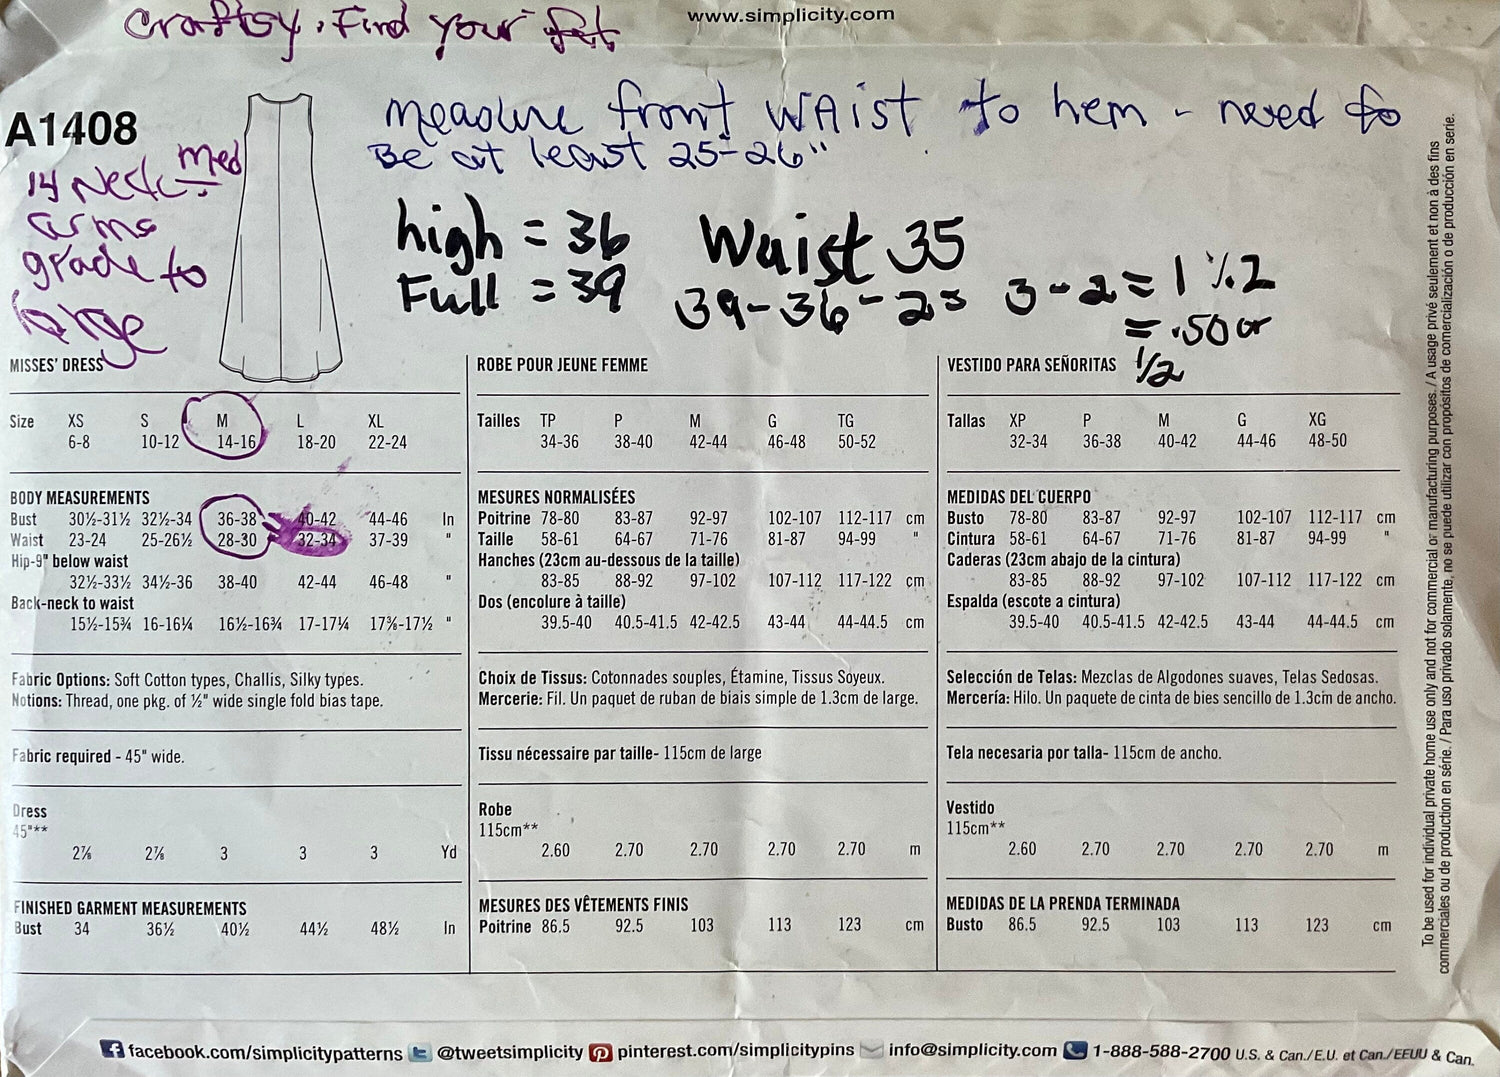 Craftsy. Find your fit
www.simplicity.com
A1408
measure front WAist to hem - need to
Be at least 25-26"
14 Neck - Med
arms
grade to
large
high = 36
Full = 39
Waist 35
39-36-2= 3-2= 1 ÷.2
= .50 or
1/2
MISSES' DRESS
Size XS S M L XL
6-8 10-12 14-16 18-20 22-24
BODY MEASUREMENTS
Bust 30½-31½ 32½-34 36-38 40-42 44-46 In
Waist 23-24 25-26½ 28-30 32-34 37-39 "
Hip-9" below waist
32½-33½ 34½-36 38-40 42-44 46-48 "
Back-neck to waist
15½-15¾ 16-16¼ 16½-16¾ 17-17¼ 17⅜-17½ "
Fabric Options: Soft Cotton types, Challis, Silky types.
Notions: Thread, one pkg. of ½" wide single fold bias tape.
Fabric required - 45" wide.
Dress
45"**
2⅞ 2⅞ 3 3 3 Yd
FINISHED GARMENT MEASUREMENTS
Bust 34 36½ 40½ 44½ 48½ In
ROBE POUR JEUNE FEMME
Tailles TP P M G TG
34-36 38-40 42-44 46-48 50-52
MESURES NORMALISÉES
Poitrine 78-80 83-87 92-97 102-107 112-117 cm
Taille 58-61 64-67 71-76 81-87 94-99 "
Hanches (23cm au-dessous de la taille)
83-85 88-92 97-102 107-112 117-122 cm
Dos (encolure à taille)
39.5-40 40.5-41.5 42-42.5 43-44 44-44.5 cm
Choix de Tissus: Cotonnades souples, Étamine, Tissus Soyeux.
Mercerie: Fil. Un paquet de ruban de biais simple de 1.3cm de large.
Tissu nécessaire par taille- 115cm de large
Robe
115cm**
2.60 2.70 2.70 2.70 2.70 m
MESURES DES VÊTEMENTS FINIS
Poitrine 86.5 92.5 103 113 123 cm
VESTIDO PARA SEÑORITAS
Tallas XP P M G XG
32-34 36-38 40-42 44-46 48-50
MEDIDAS DEL CUERPO
Busto 78-80 83-87 92-97 102-107 112-117 cm
Cintura 58-61 64-67 71-76 81-87 94-99 "
Caderas (23cm abajo de la cintura)
83-85 88-92 97-102 107-112 117-122 cm
Espalda (escote a cintura)
39.5-40 40.5-41.5 42-42.5 43-44 44-44.5 cm
Selección de Telas: Mezclas de Algodones suaves, Telas Sedosas.
Mercería: Hilo. Un paquete de cinta de bies sencillo de 1.3cm de ancho.
Tela necesaria por talla- 115cm de ancho.
Vestido
115cm**
2.60 2.70 2.70 2.70 2.70 m
MEDIDAS DE LA PRENDA TERMINADA
Busto 86.5 92.5 103 113 123 cm
To be used for individual private home use only and not for commercial or manufacturing purposes. / A usage privé seulement et non à des fins
commerciales ou de production en série. / Para uso privado solamente, no se puede utilizar con propósitos de comercialización o de producción en serie.
facebook.com/simplicitypatterns @tweetsimplicity pinterest.com/simplicitypins info@simplicity.com 1-888-588-2700 U.S. & Can./E.U. et Can./EEUU & Can.